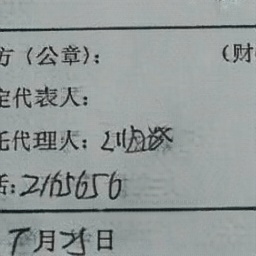 方（公章）： （财
定代表人：
托代理人：
话：2165656
月25日